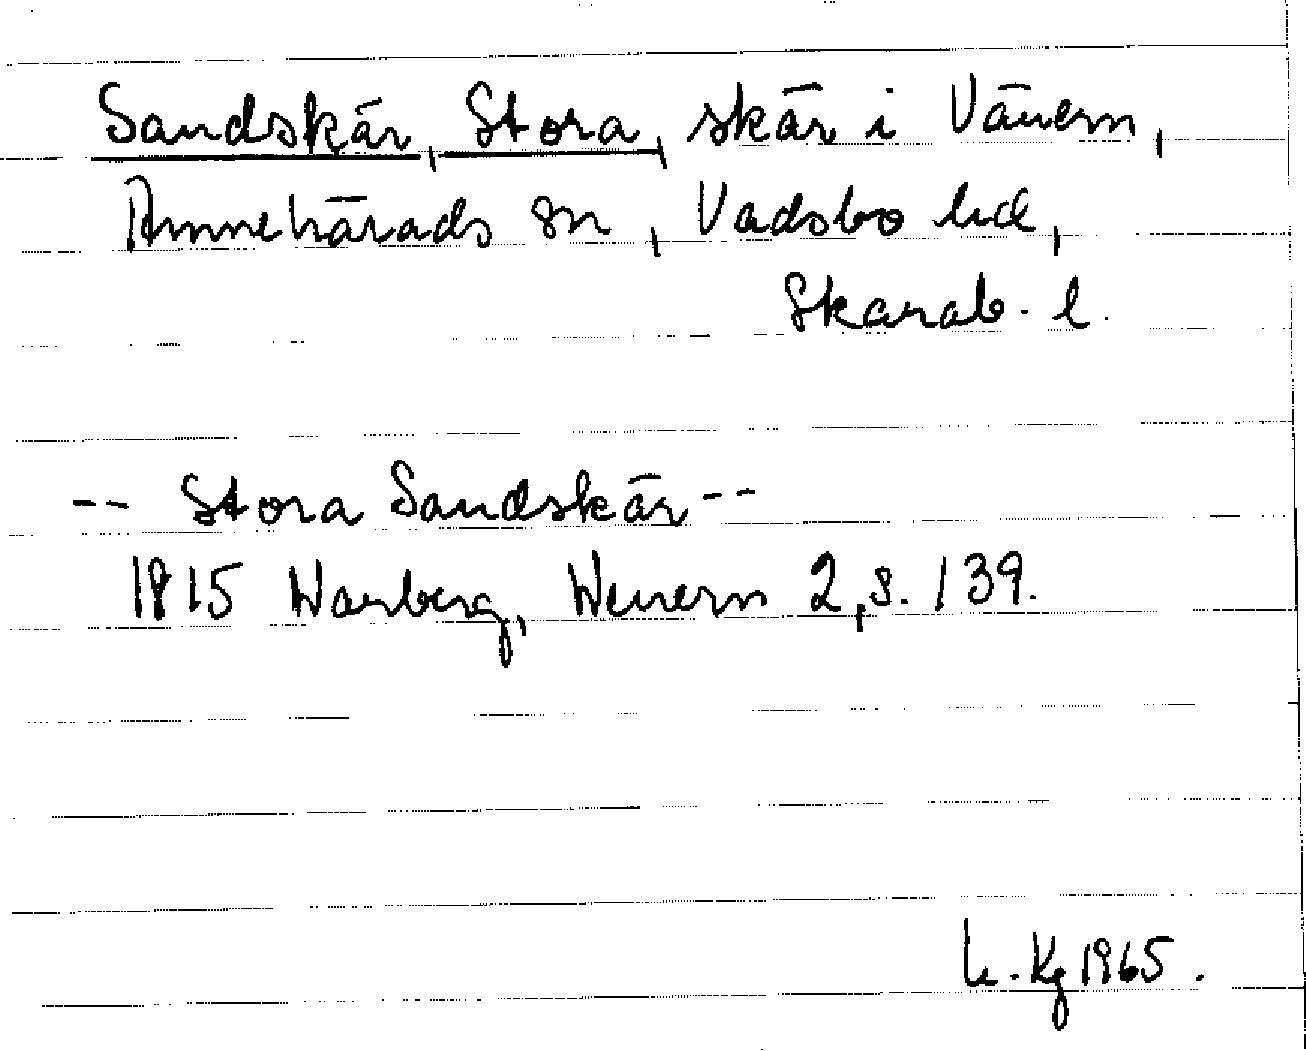 Sandskär, Stora, skär i Vänern,
Amnehärads sn, Vadsbo hd,
Skarab. l.
-- Stora Sandskär --
1815 Warberg, Wenern 2, s. 139.
Kg 1965.